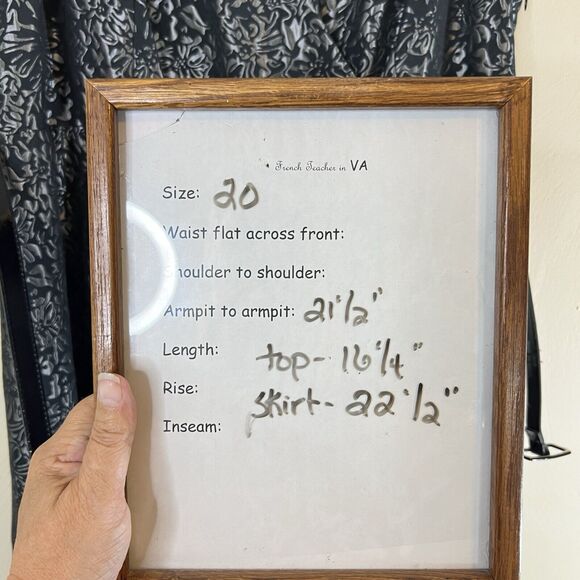 French Teacher in VA
Size: 20
Waist flat across front:
Shoulder to shoulder:
Armpit to armpit: 21 1/2"
Length: top- 16 1/4"
Rise: skirt- 22 1/2"
Inseam: